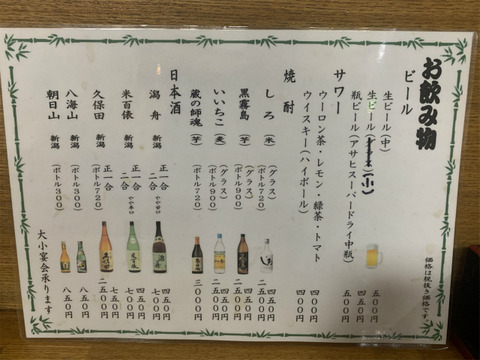 お飲み物
価格は税抜き価格です。
ビール
生ビール(中) 五〇〇円
生ビール(小)
瓶ビール(アサヒスーパードライ中瓶) 五五〇円
サワー
ウーロン茶・レモン・緑茶・トマト 四〇〇円
ウイスキー(ハイボール) 四〇〇円
焼酎
しろ(米) (グラス) 四五〇円
(ボトル720) 二五〇〇円
黒霧島(芋) (グラス) 四五〇円
(ボトル900) 二五〇〇円
いいちこ(麦) (グラス) 四五〇円
(ボトル900) 二五〇〇円
蔵の師魂(芋) (ボトル720) 三〇〇〇円
日本酒
潟舟 新潟 正一合 やや辛口 四五〇円
二合 七五〇円
米百俵 新潟 正一合 やや甘口
二合 七五〇円
久保田 新潟 正一合 五〇〇円
(ボトル720) 二五〇〇円
八海山 新潟 (ボトル300) 八五〇円
朝日山 新潟 (ボトル300) 八五〇円
大小宴会承ります